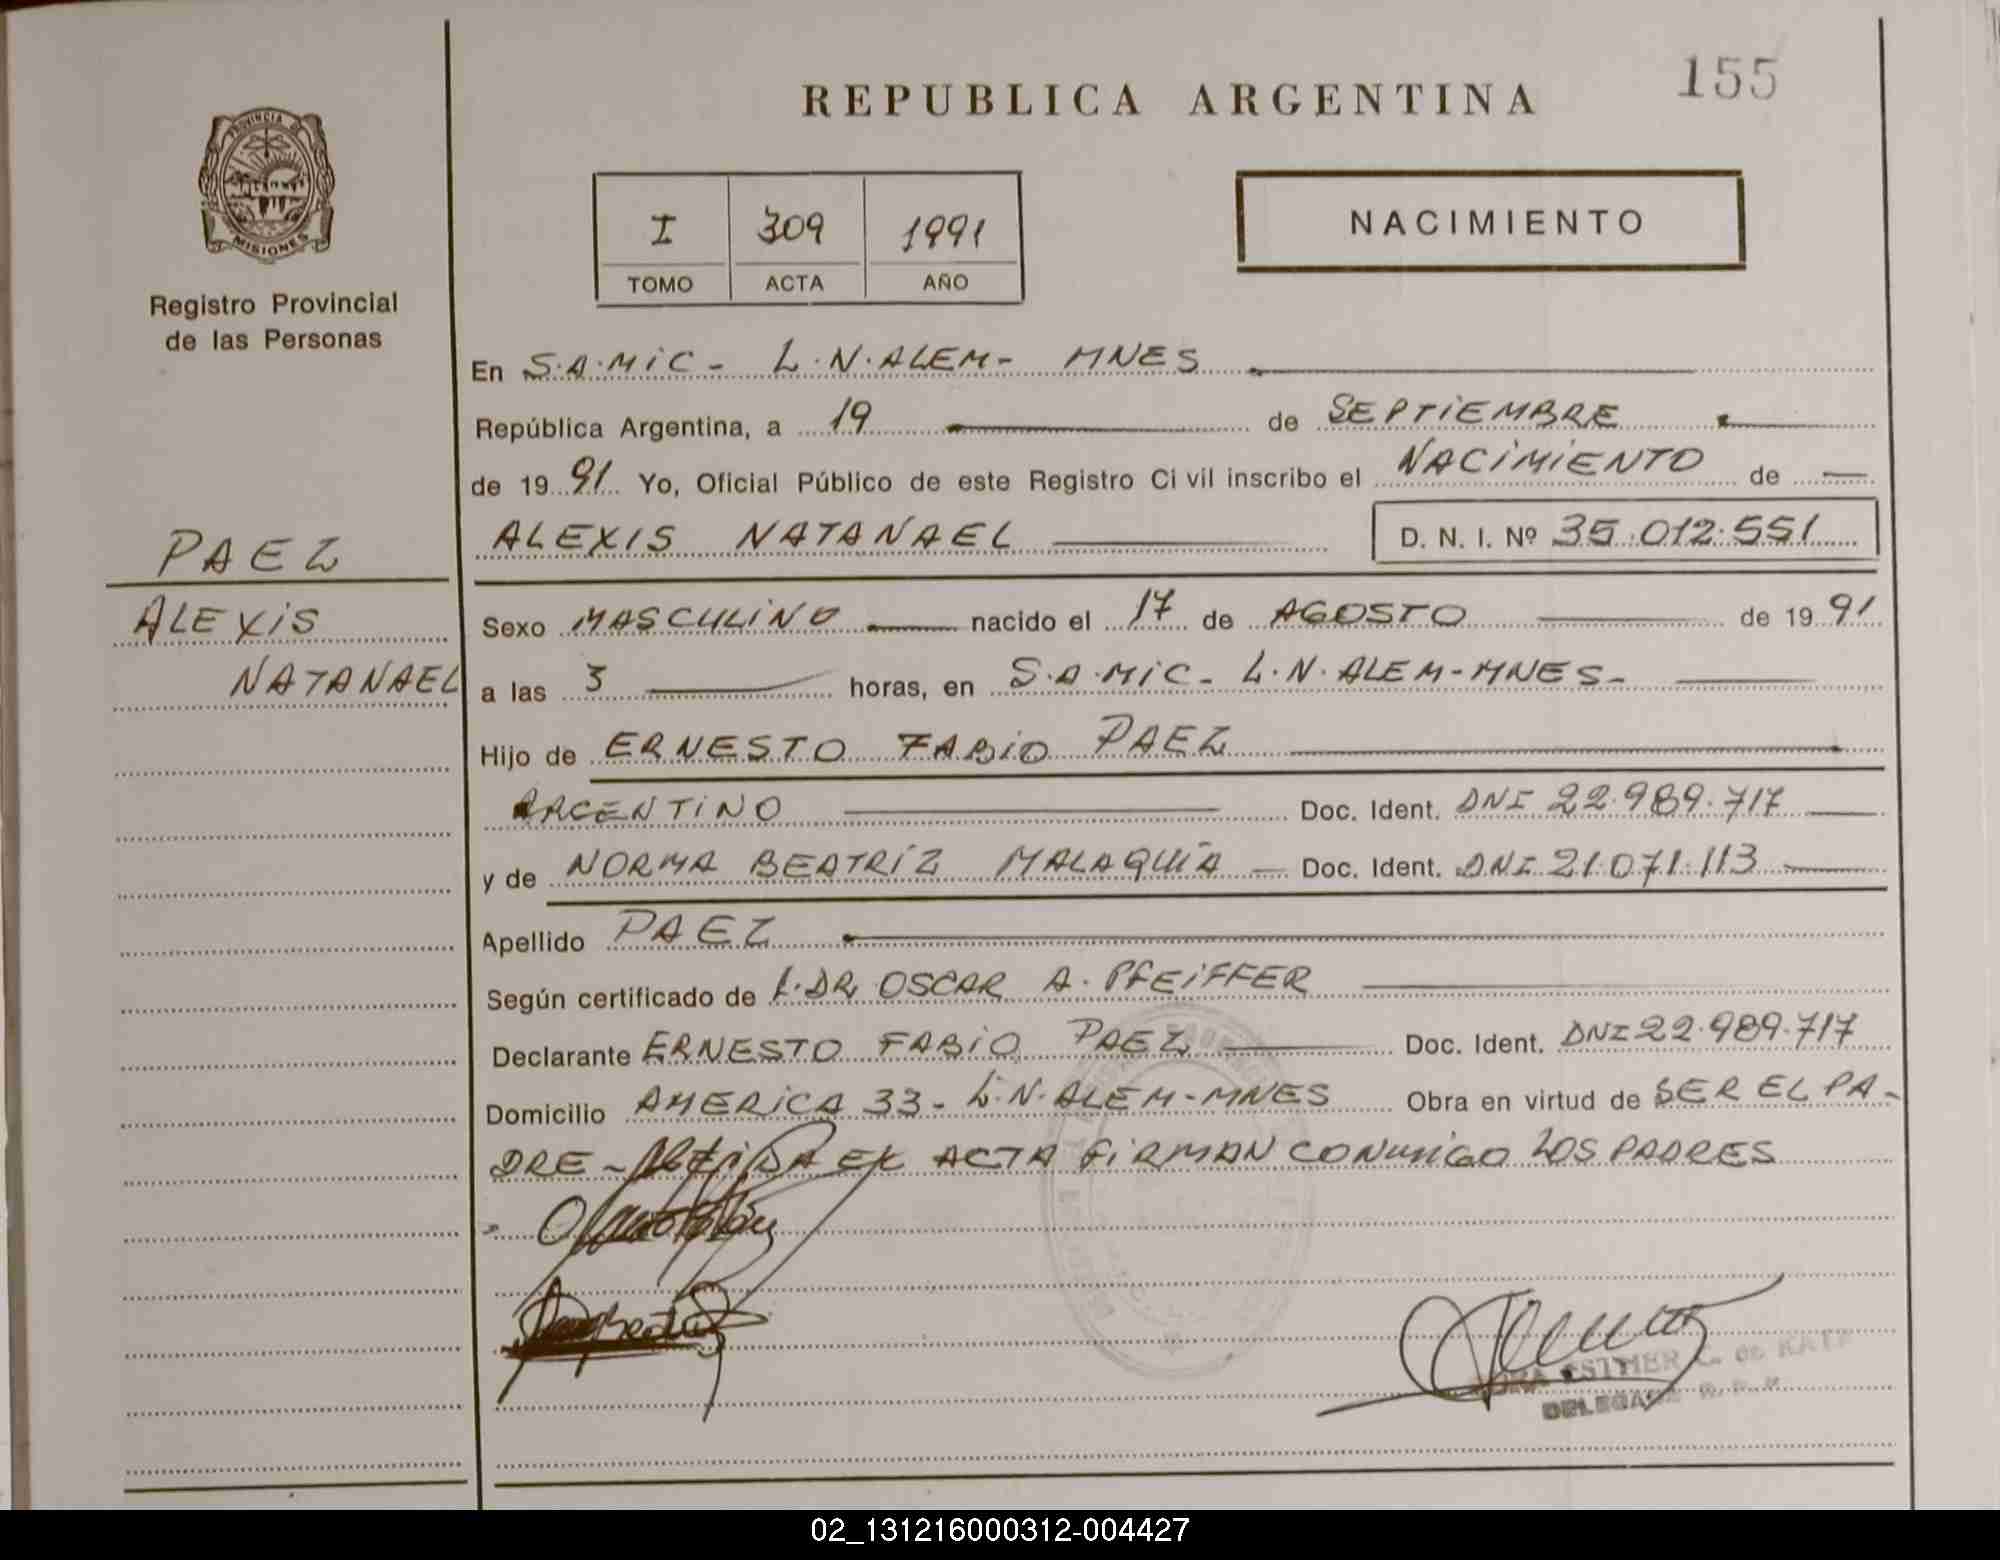 155
REPUBLICA ARGENTINA
PROVINCIA DE
MISIONES
Registro Provincial
de las Personas
I 309 1991
TOMO ACTA AÑO
NACIMIENTO
En S.A.MIC - L.N.ALEM - MNES
República Argentina, a 19 de SEPTIEMBRE
de 1991 Yo, Oficial Público de este Registro Civil inscribo el NACIMIENTO de
ALEXIS NATANAEL D. N. I. Nº 35.012.551
PAEZ
ALEXIS
NATANAEL
Sexo MASCULINO nacido el 17 de AGOSTO de 1991
a las 3 horas, en S.A.MIC - L.N.ALEM-MNES-
Hijo de ERNESTO FABIO PAEZ
ARGENTINO Doc. Ident. DNI 22.989.717
y de NORMA BEATRÍZ MALAQUÍA Doc. Ident. DNI 21.071.113
Apellido PAEZ
Según certificado de L.DR OSCAR A. PFEIFFER
Declarante ERNESTO FABIO PAEZ Doc. Ident. DNI 22.989.717
Domicilio AMERICA 33 - L.N.ALEM-MNES Obra en virtud de SER EL PA-
DRE - ACTA FIRMAN CONMIGO LOS PADRES
ESTHER C. de KATZ
DELEGADA R.P.P.
02_131216000312-004427